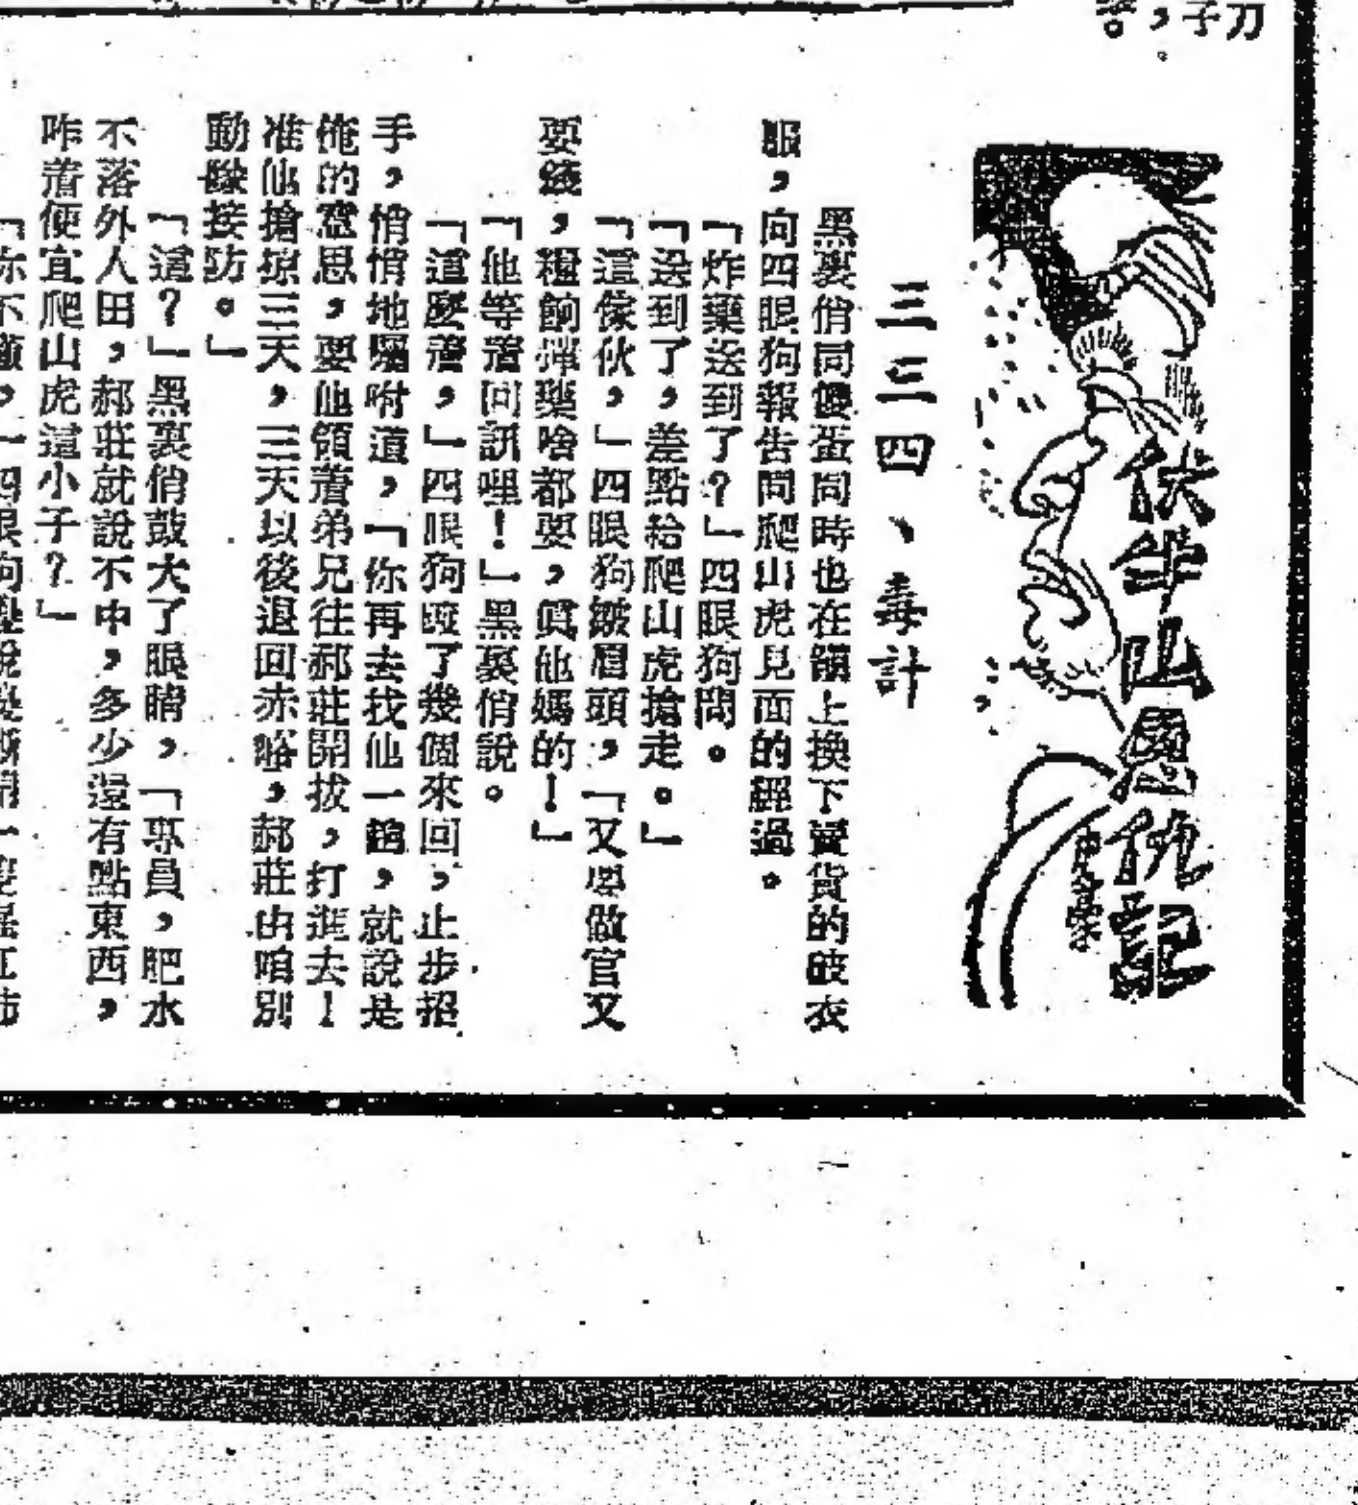 刀
子
伏牛山恩仇記
三三四、毒計
黑裏俏同傻蛋同時也在嶺上換下賣貨的破衣
服,向四眼狗報告同爬山虎見面的經過。
「炸藥送到了?」四眼狗問。
「送到了,差點給爬山虎搶走。」
「這傢伙,」四眼狗皺眉頭,「又要做官又
要錢,糧餉彈藥啥都要,真他媽的!」
「他等着回訊哩!」黑裏俏說。
「這麼着,」四眼狗踱了幾個來回,止步招
手,悄悄地囑咐道,「你再去找他一趟,就說是
俺的意思,要他領着弟兄往郝莊開拔,打進去!
准他搶掠三天,三天以後退回赤峪,郝莊由咱別
動隊接防。」
「這?」黑裏俏鼓大了眼睛,「專員,肥水
不落外人田,郝莊就說不中,多少還有點東西,
咋着便宜爬山虎這小子?」